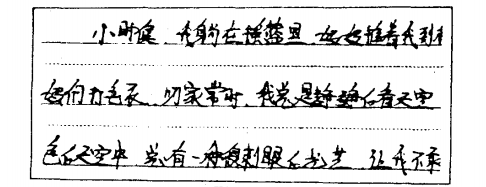 小时候，我躺在摇篮里，妈妈推着我到
妈们打毛衣，叨家常时，我总是静静看天空
色的天空中，总有一种很刺眼的光芒，让我不